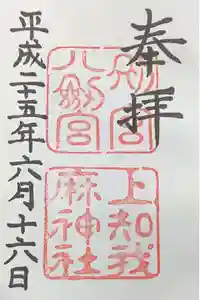 奉拝
別宮
八劔宮
上知我
麻神社
平成二十五年六月十六日